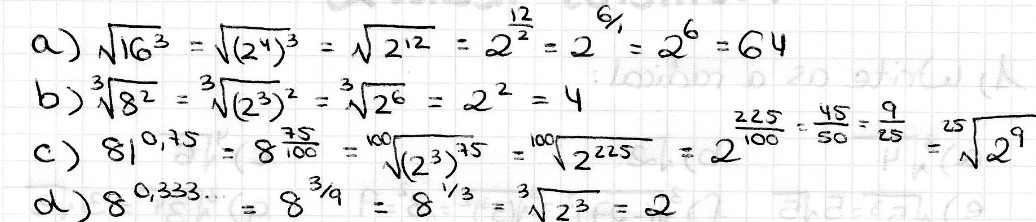 a) √16³ = √(2⁴)³ = √2¹² = 2^(12/2) = 2^(6/1) = 2⁶ = 64
b) ³√8² = ³√(2³)² = ³√2⁶ = 2² = 4
c) 81^0,75 = 8^(75/100) = ¹⁰⁰√(2³)⁷⁵ = ¹⁰⁰√2²²⁵ = 2^(225/100 = 45/50 = 9/25) = ²⁵√2⁹
d) 8^0,333... = 8^(3/9) = 8^(1/3) = ³√2³ = 2